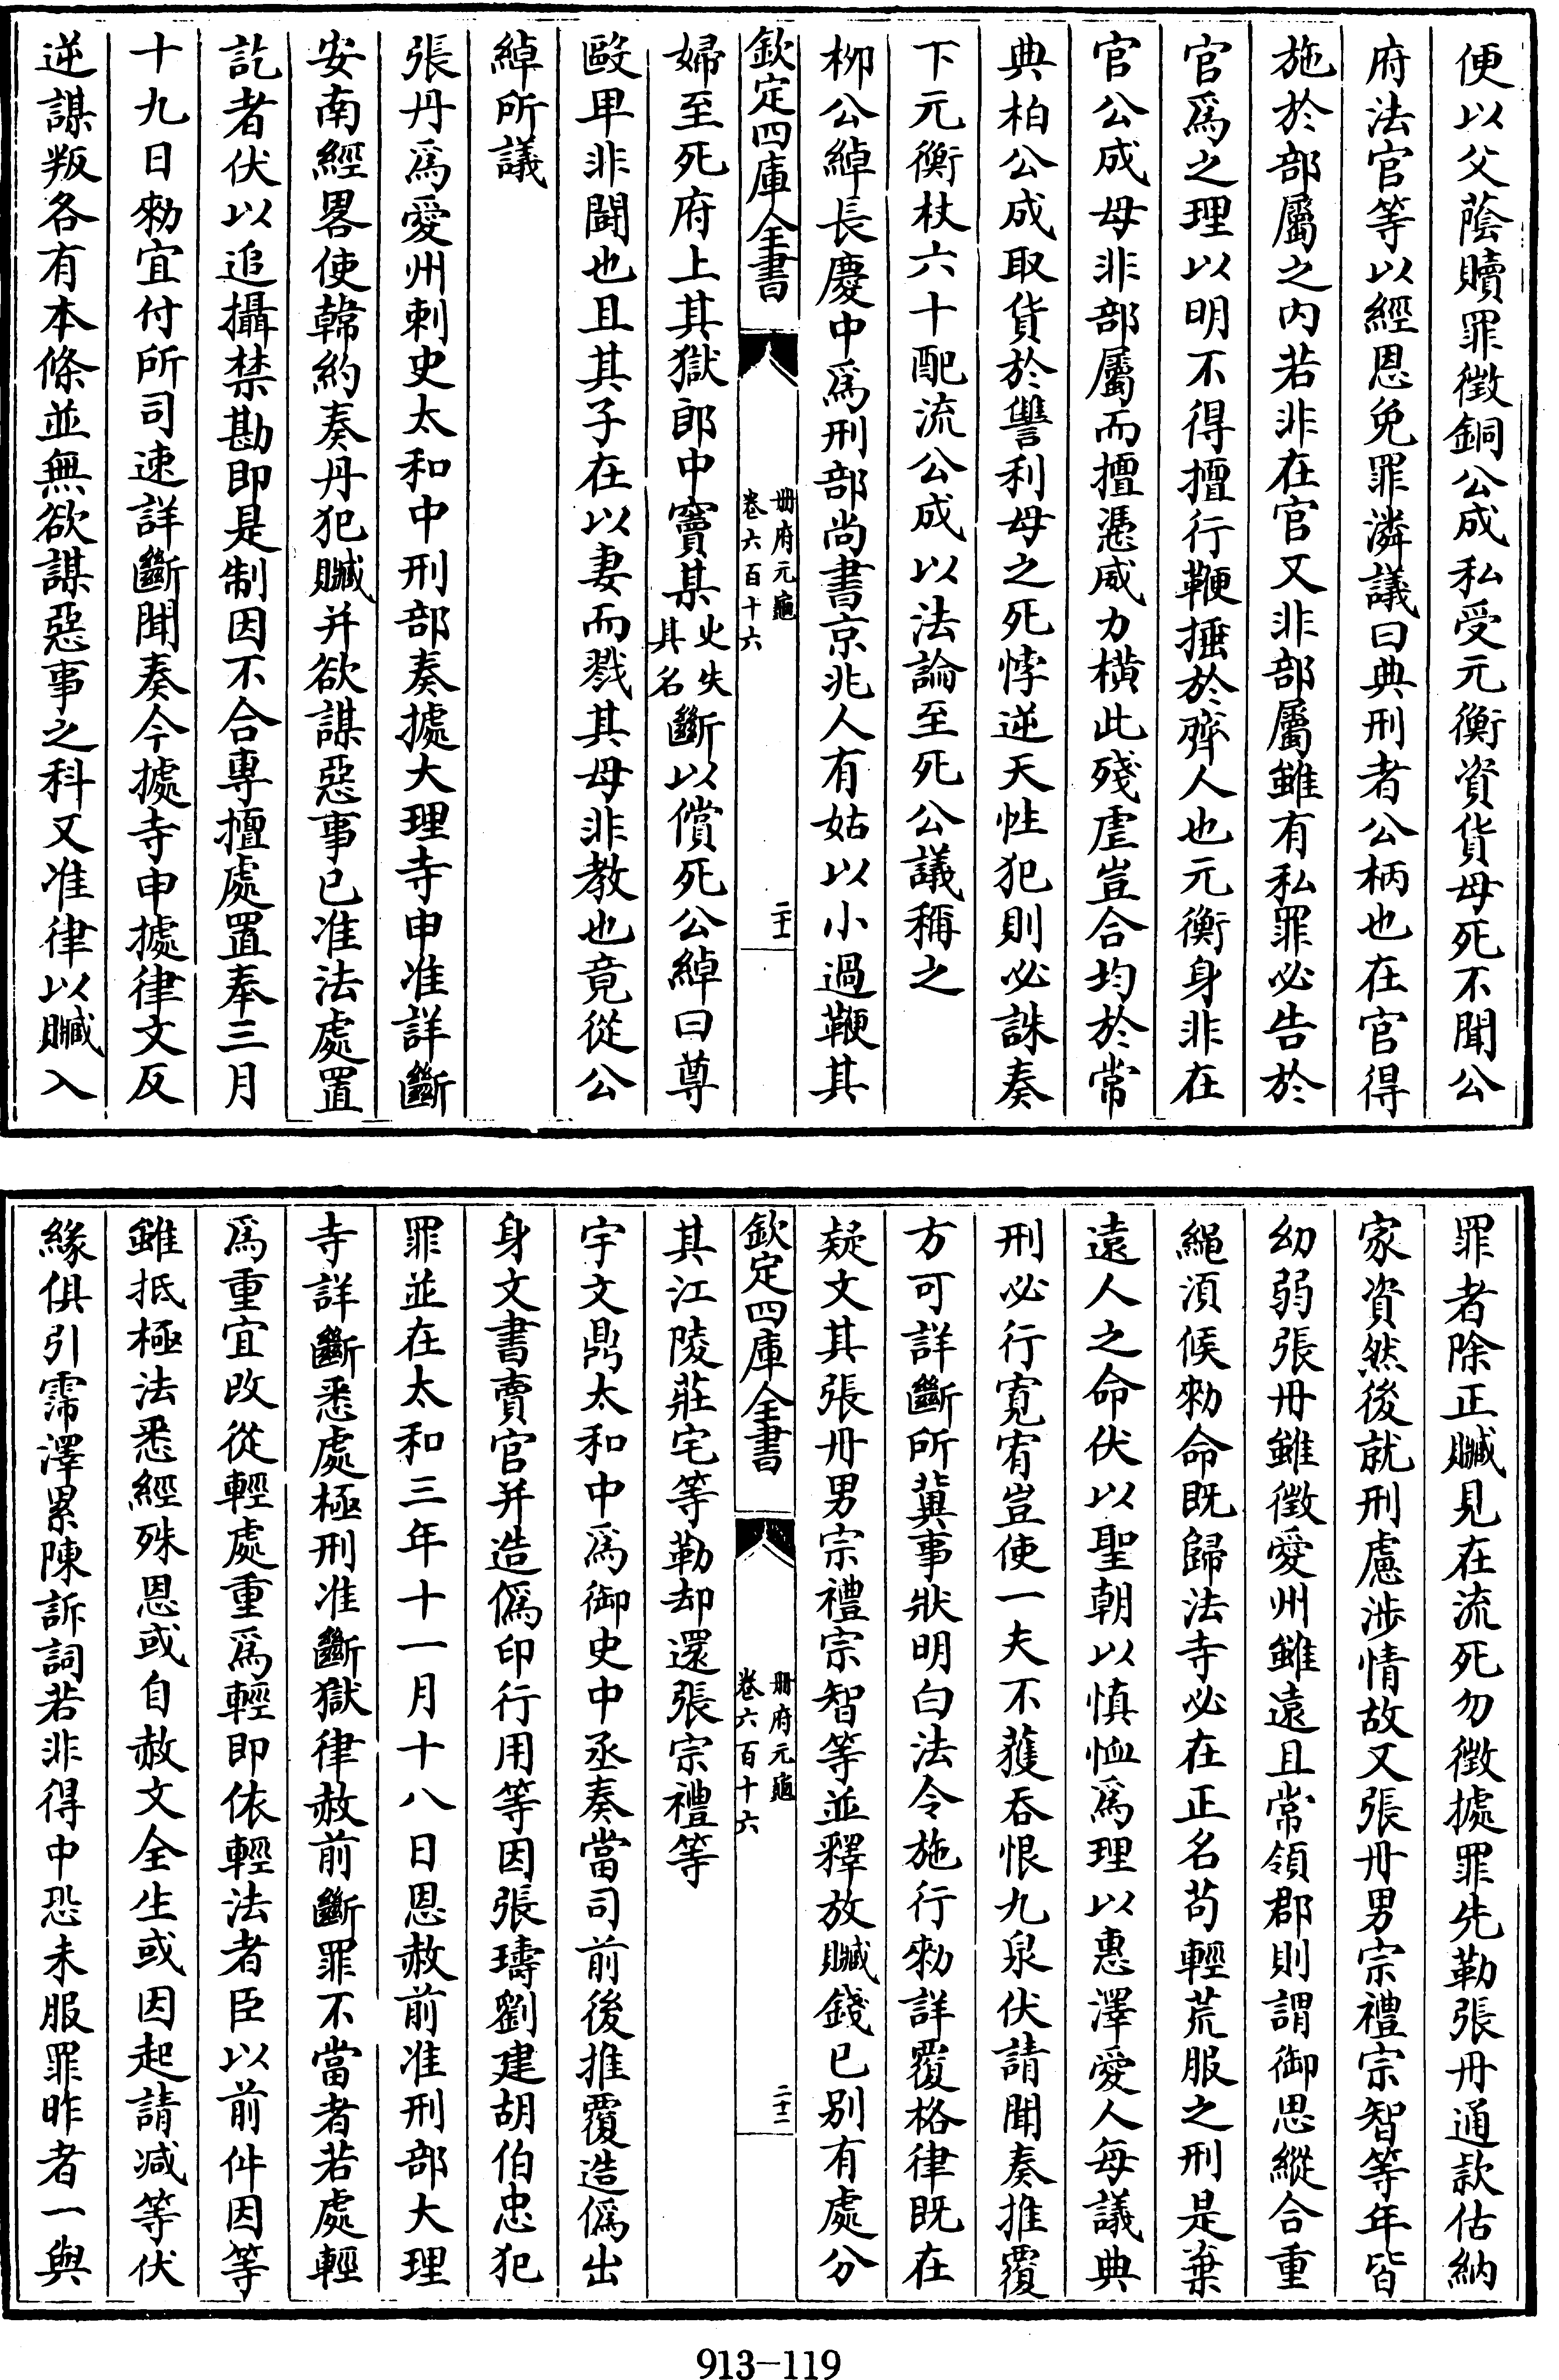 便以父蔭贖罪徵銅公成私受元衡資貨母死不聞公
府法官等以經恩免罪潾議曰典刑者公柄也在官得
施於部屬之内若非在官又非部屬雖有私罪必告於
官爲之理以明不得擅行鞭捶於齊人也元衡身非在
官公成母非部屬而擅憑威力橫此殘虐豈合均於常
典柏公成取貨於讐利母之死悖逆天性犯則必誅奏
下元衡杖六十配流公成以法論至死公議稱之
柳公綽長慶中爲刑部尚書京兆人有姑以小過鞭其
欽定四庫全書
册府元龜
卷六百十六
二十一
婦至死府上其獄郎中竇某火失其名斷以償死公綽曰尊
毆卑非鬪也且其子在以妻而戮其母非教也竟從公
綽所議
張丹爲愛州刺史太和中刑部奏據大理寺申准詳斷
安南經畧使韓約奏丹犯贓并欲謀惡事已准法處置
訖者伏以追攝禁勘即是制因不合專擅處置奉三月
十九日勑宜付所司速詳斷聞奏今據寺申據律文反
逆謀叛各有本條並無欲謀惡事之科又准律以贓入
罪者除正贓見在流死勿徵據罪先勒張丹通款估納
家資然後就刑慮涉情故又張丹男宗禮宗智等年皆
幼弱張丹雖徵愛州雖遠且常領郡則謂御思縱合重
繩須候勑命既歸法寺必在正名苟輕荒服之刑是棄
遠人之命伏以聖朝以慎恤爲理以惠澤愛人每議典
刑必行寛宥豈使一夫不獲吞恨九泉伏請聞奏推覆
方可詳斷所冀事狀明白法令施行勑詳覆格律既在
疑文其張丹男宗禮宗智等並釋放贓錢已别有處分
欽定四庫全書
册府元龜
卷六百十六
二十二
其江陵莊宅等勒却還張宗禮等
宇文鼎太和中爲御史中丞奏當司前後推覆造僞出
身文書賣官并造僞印行用等因張璹劉建胡伯忠犯
罪並在太和三年十一月十八日恩赦前准刑部大理
寺詳斷悉處極刑准斷獄律赦前斷罪不當者若處輕
爲重宜改從輕處重爲輕即依輕法者臣以前件因等
雖抵極法悉經殊恩或自赦文全生或因起請减等伏
緣俱引霈澤累陳訴詞若非得中恐未服罪昨者一與
913-119